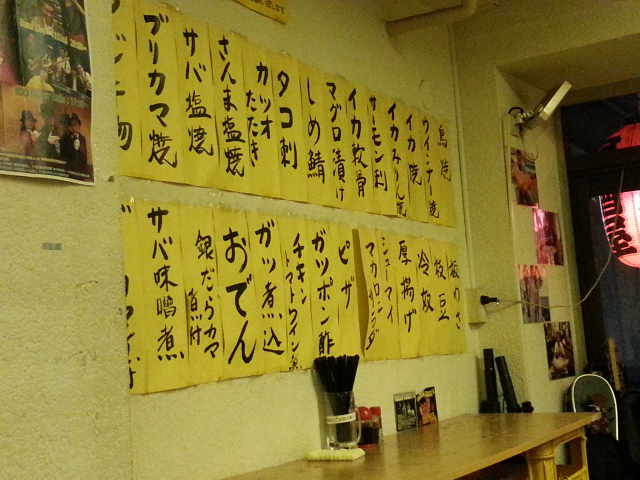 ブリカマ焼
サバ塩焼
さんま塩焼
カツオたたき
タコ刺
しめ鯖
マグロ漬け
イカ軟骨
サーモン刺
イカみりん焼
イカ焼
ウインナー焼
鳥焼
サバ味噌煮
銀だらカマ煮付
おでん
ガツ煮込
チキントマトワイン煮
ガツポン酢
ピザ
マカロニサラダ
シューマイ
厚揚げ
冷奴
枝豆
板わさ